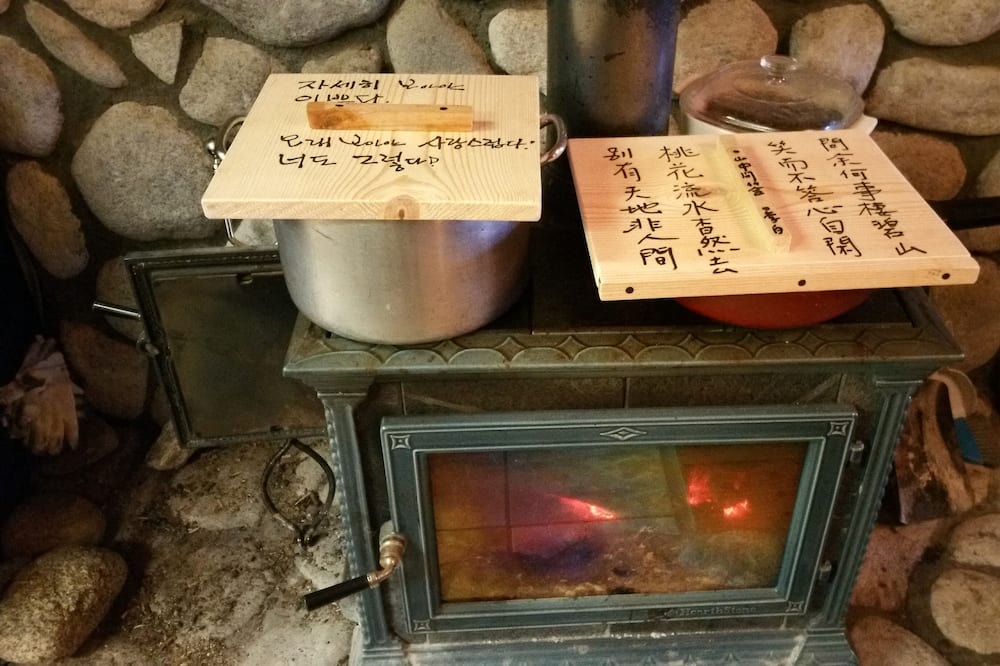 자세히 보아야
이쁘다.
오래 보아야 사랑스럽다.
너도 그렇다
問余何事棲碧山
笑而不答心自閑
·山中問答 李白
桃花流水杳然去
別有天地非人間
HearthStone